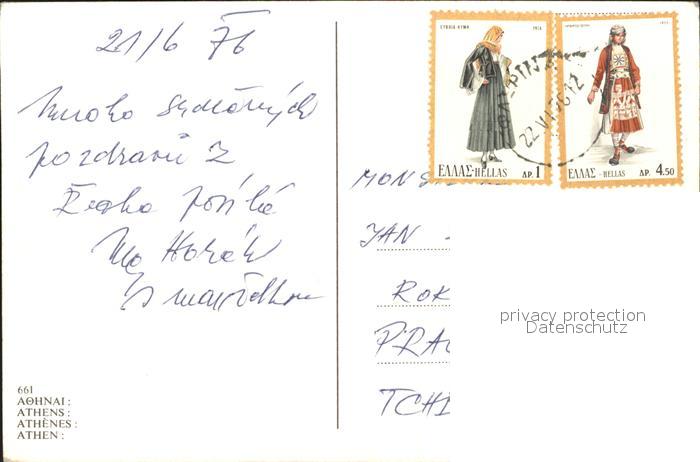 21/6 76
Mnoho srdečných
pozdravů z
Řecka posílá
Horák
s manželkou
661
ΑΘΗΝΑΙ :
ATHENS :
ATHÈNES :
ATHEN :
ΕΥΒΟΙΑ-ΚΥΜΗ
ΕΛΛΑΣ-HELLAS ΔΡ. 1
ΕΛΛΑΣ - HELLAS ΔΡ. 4.50
22 VI 76 12
MONS
JAN
ROK
PRA
TCH
privacy protection
Datenschutz